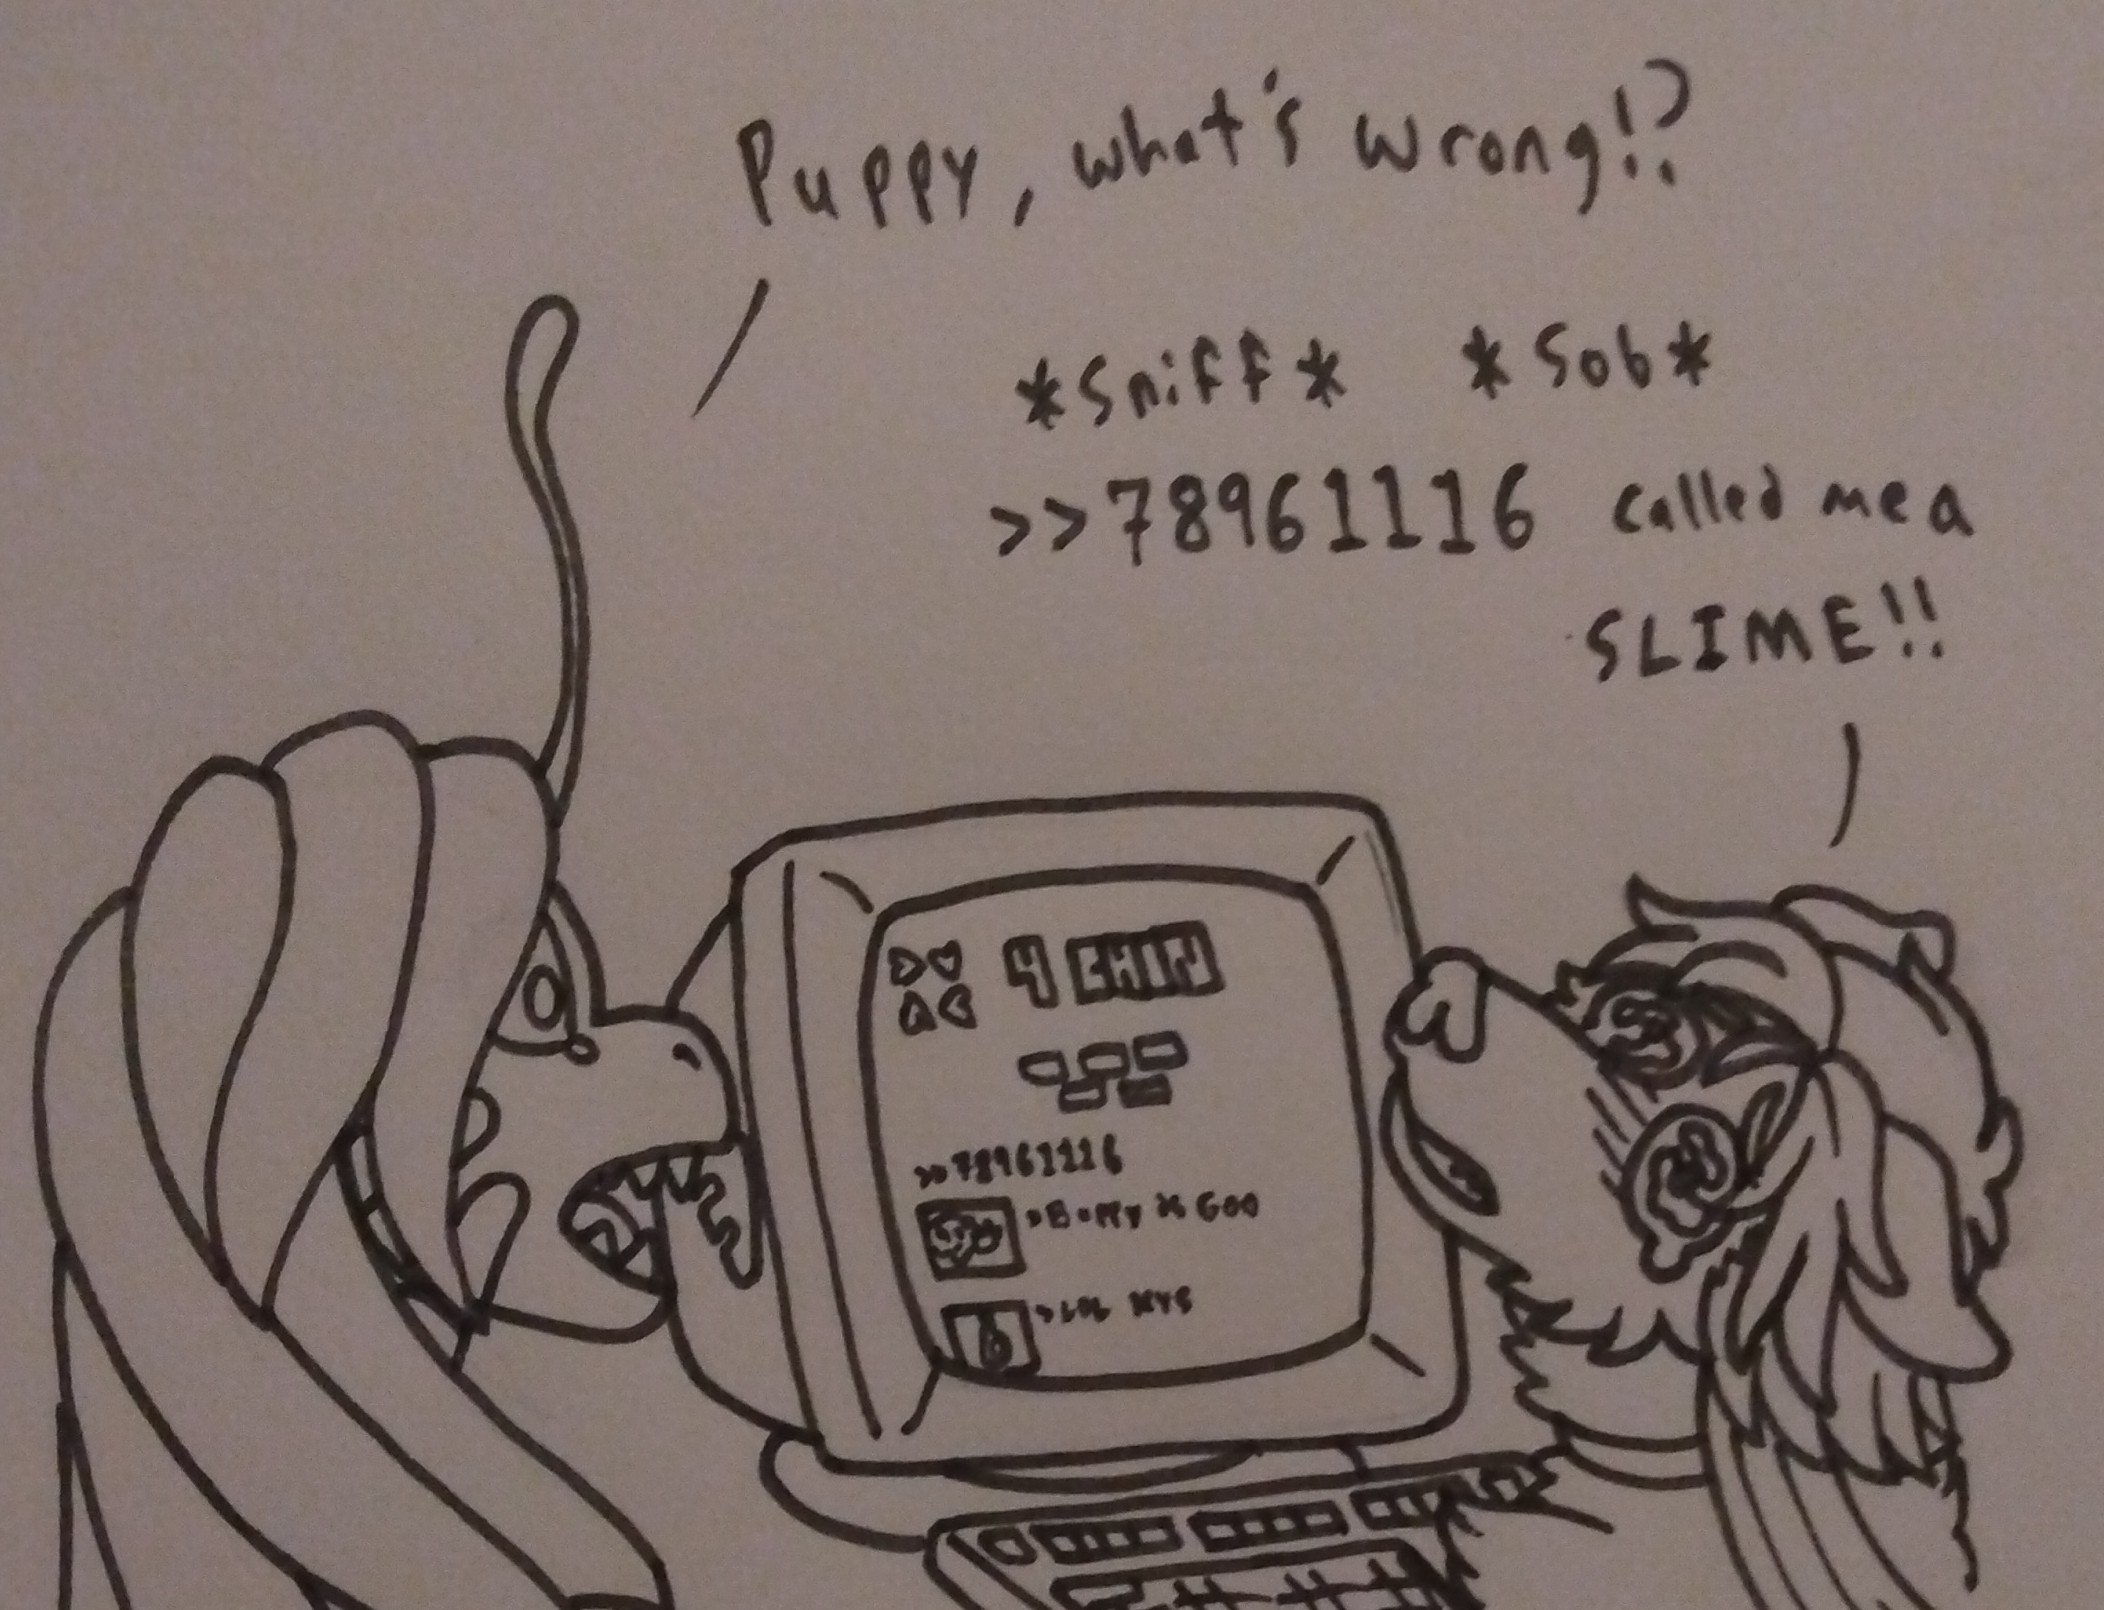 Puppy, what's wrong!?
*Sniff* *Sob*
>>78961116 called me a
SLIME!!
4 CHIN
>>78961116
GOO
>LOL